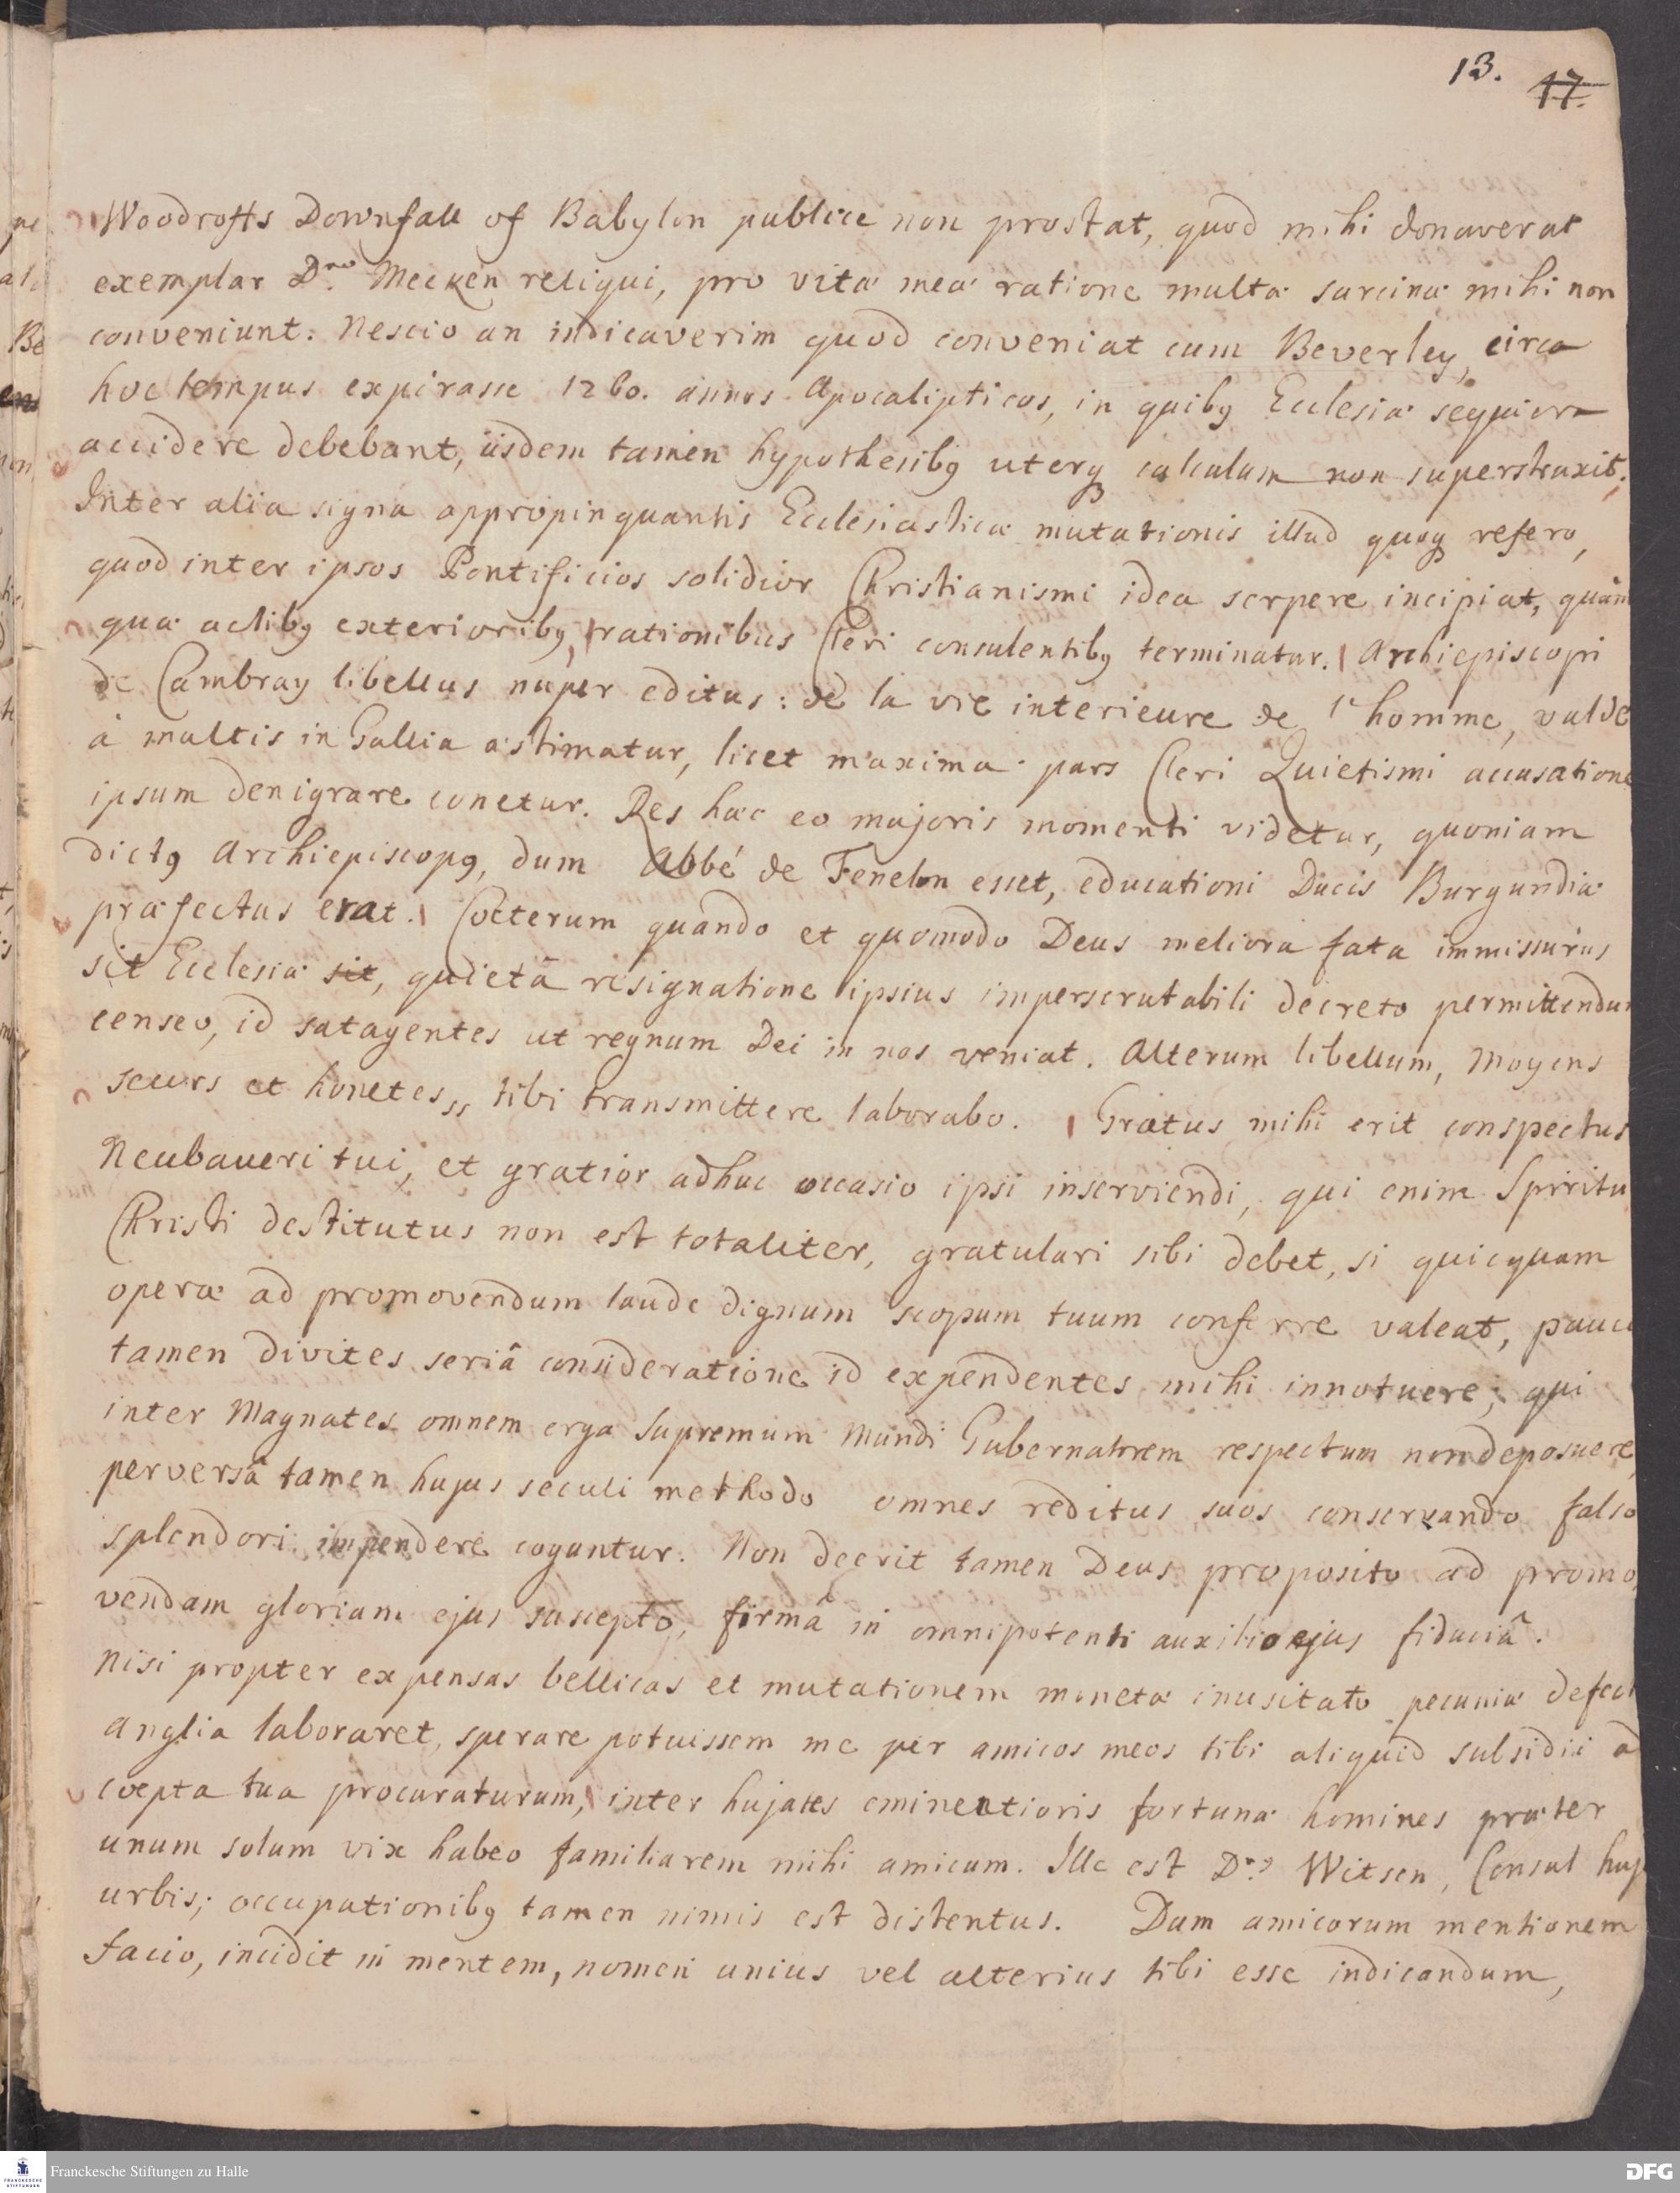 13. 17.
Woodrofts Downfall of Babylon publice non prostat, quod mihi donaverat
exemplar Dno. Mecken reliqui, pro vitæ meæ ratione multæ sarcinæ mihi non
conveniunt. Nescio an indicaverim quod conveniat cum Beverley, circa
hoc tempus expirasse 1260. annos Apocalipticos, in quibꝫ Ecclesiæ sequiora
accidere debebant, iisdem tamen hypothesibꝫ uterqꝫ calculum non superstruxit;
Inter alia signa appropinquantis Ecclesiasticæ mutationis illud quoqꝫ refero,
quod inter ipsos Pontificios solidior Christianismi idea serpere incipiat, quàm
quæ actibꝫ exterioribꝫ, rationibus Cleri consulentibꝫ terminatur. Archiepiscopi
de Cambray libellus nuper editus: de la vie interieure de l'homme, valde
à multis in Gallia æstimatur, licet maxima pars Cleri Quietismi accusatione
ipsum denigrare conetur. Res hæc eo majoris momenti videtur, quoniam
dictꝰ Archiepiscopꝰ, dum Abbé de Fenelon esset, educationi Ducis Burgundiæ
præfectus erat. Cœterum quando et quomodo Deus meliora fata immissurus
sit Ecclesiæ sit, quietâ resignatione ipsius imperscrutabili decreto permittendum
censeo, id satagentes ut regnum Dei in nos veniat. Alterum libellum, Moyens
seurs et honetes,, tibi transmittere laborabo. Gratus mihi erit conspectus
Neubaueri tui, et gratior adhuc occasio ipsi inserviendi, qui enim Spiritu
Christi destitutus non est totaliter, gratulari sibi debet, si quicquam
operæ ad promovendum laude dignum scopum tuum conferre valeat, pauci
tamen divites seriâ consideratione id expendentes mihi innotuere; qui
inter Magnates omnem erga Supremum Mundi Gubernatorem respectum non deposuere,
perversâ tamen hujus seculi methodo omnes reditus suos conservando falso
splendori impendere coguntur. Non deerit tamen Deus proposito ad promo,
vendam gloriam ejus suscepto, firmâ in omnipotenti auxilio ejus fiduciâ.
Nisi propter expensas bellicas et mutationem monetæ inusitato pecuniæ defect
Anglia laboraret, sperare potuissem me per amicos meos tibi aliquid subsidii ad
cœpta tua procuraturum, inter hujates eminentioris fortunæ homines præter
unum solum vix habeo familiarem mihi amicum. Ille est Dns. Witsen, Consul huj
urbis; occupationibꝫ tamen nimis est distentus. Dum amicorum mentionem
facio, incidit in mentem, nomen unius vel alterius tibi esse indicandum,
Franckesche Stiftungen zu Halle
DFG